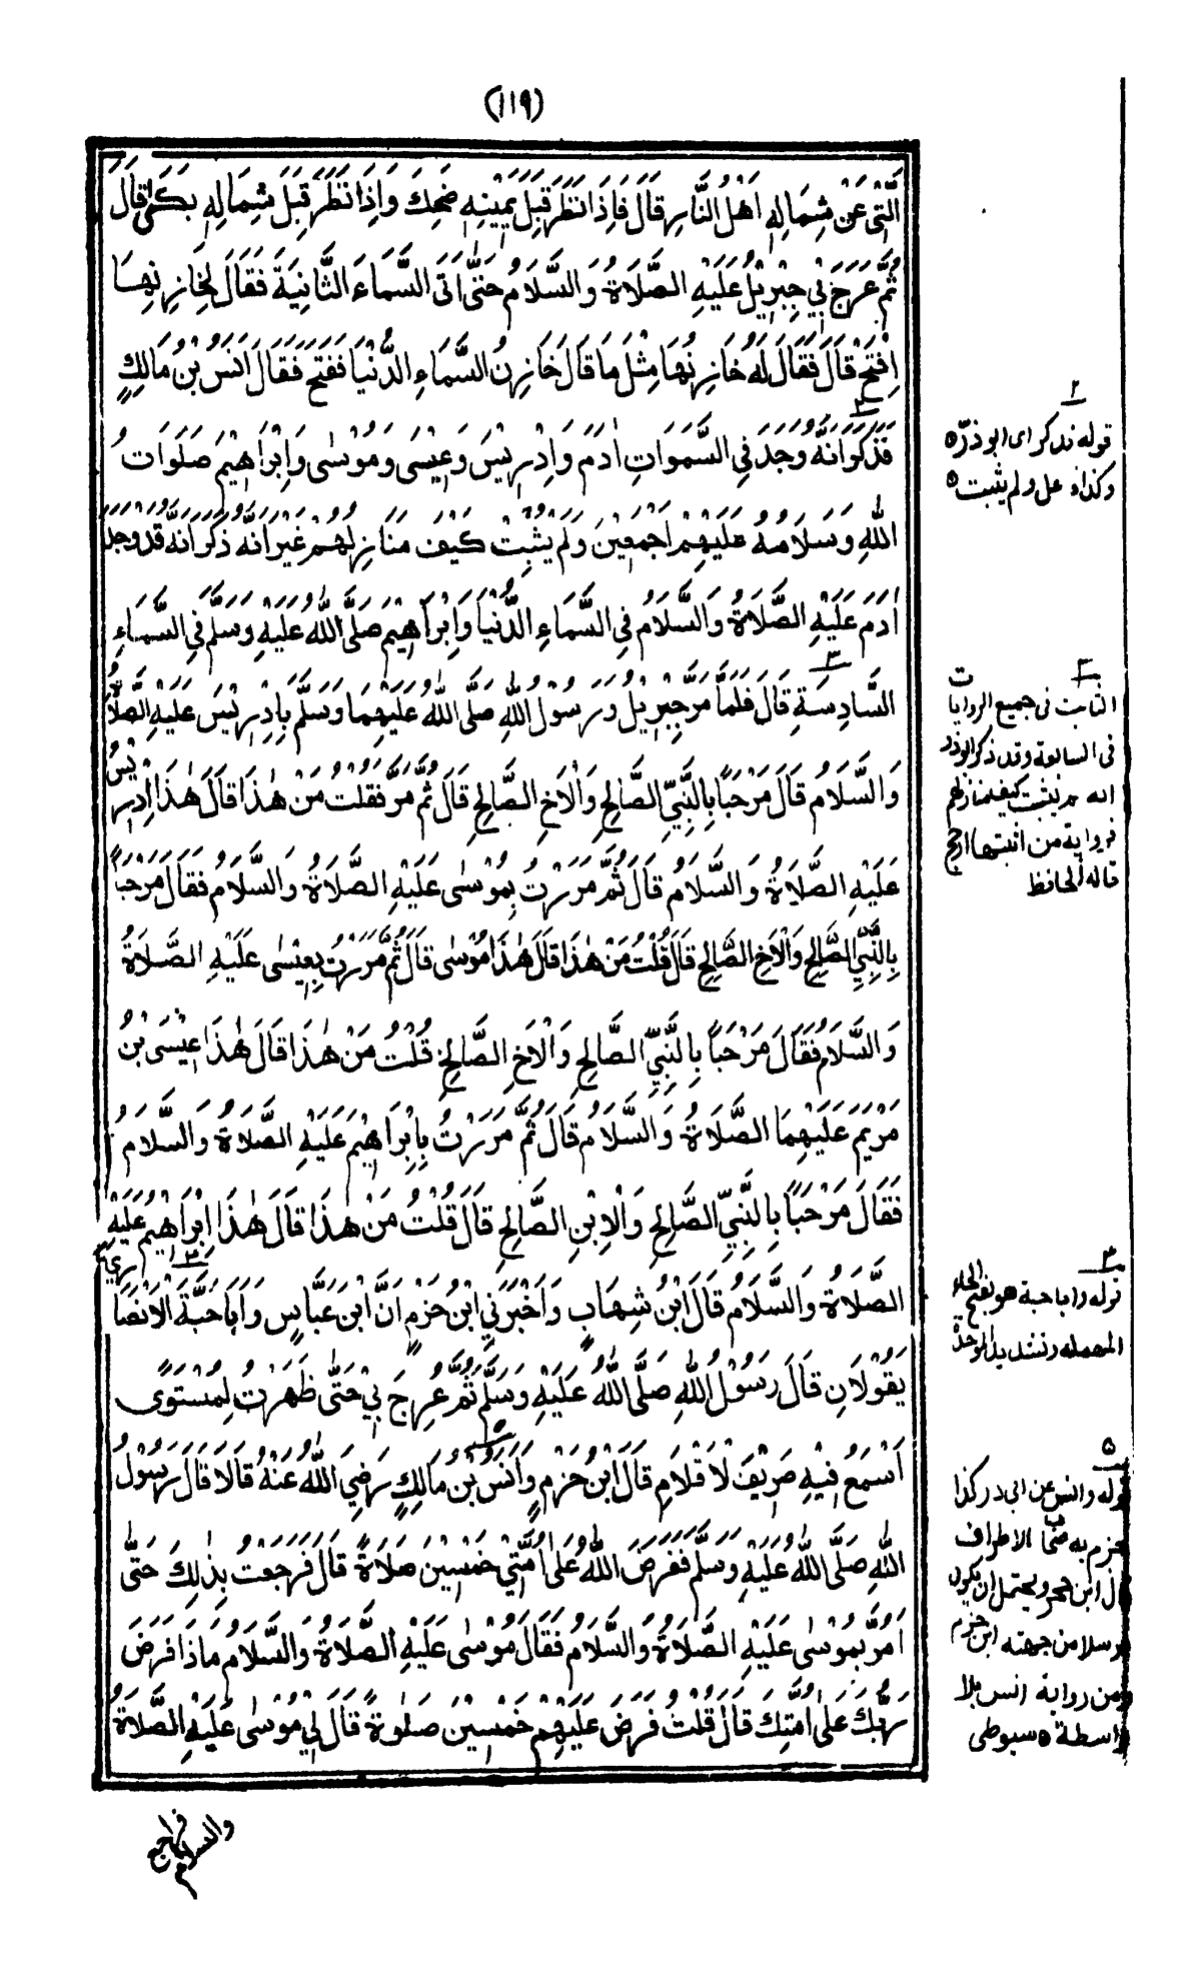 (١١٩)
الَّتِيْ عَنْ شِمَالِهِ اَهْلُ النَّارِ قَالَ فَاِذَا نَظَرَ قِبَلَ يَمِيْنِهِ ضَحِكَ وَاِذَا نَظَرَ قِبَلَ شِمَالِهِ بَكَىٰ قَالَ
ثُمَّ عَرَجَ بِيْ جِبْرِيْلُ عَلَيْهِ الصَّلَاةُ وَالسَّلَامُ حَتّٰى اَتَى السَّمَاءَ الثَّانِيَةَ فَقَالَ لِخَازِنِهَا
اِفْتَحْ قَالَ فَقَالَ لَهُ خَازِنُهَا مِثْلَ مَا قَالَ خَازِنُ السَّمَاءِ الدُّنْيَا فَفَتَحَ فَقَالَ اَنَسُ بْنُ مَالِكٍ
فَذَكَرَ٢ اَنَّهُ وَجَدَ فِي السَّمٰوَاتِ اٰدَمَ وَاِدْرِيْسَ وَعِيْسٰى وَمُوْسٰى وَاِبْرَاهِيْمَ صَلَوَاتُ
اللّٰهِ وَسَلَامُهُ عَلَيْهِمْ اَجْمَعِيْنَ وَلَمْ يُثْبِتْ كَيْفَ مَنَازِلُهُمْ غَيْرَ اَنَّهُ ذَكَرَ اَنَّهُ قَدْ وَجَدَ
اٰدَمَ عَلَيْهِ الصَّلَاةُ وَالسَّلَامُ فِي السَّمَاءِ الدُّنْيَا وَاِبْرَاهِيْمَ صَلَّى اللّٰهُ عَلَيْهِ وَسَلَّمَ فِي السَّمَاءِ
السَّادِسَةِ٣ قَالَ فَلَمَّا مَرَّ جِبْرِيْلُ وَرَسُوْلُ اللّٰهِ صَلَّى اللّٰهُ عَلَيْهِمَا وَسَلَّمَ بِاِدْرِيْسَ عَلَيْهِ الصَّلَاةُ
وَالسَّلَامُ قَالَ مَرْحَبًا بِالنَّبِيِّ الصَّالِحِ وَالْاَخِ الصَّالِحِ قَالَ ثُمَّ مَرَّ فَقُلْتُ مَنْ هٰذَا قَالَ هٰذَا اِدْرِيْسُ
عَلَيْهِ الصَّلَاةُ وَالسَّلَامُ قَالَ ثُمَّ مَرَرْتُ بِمُوْسٰى عَلَيْهِ الصَّلَاةُ وَالسَّلَامُ فَقَالَ مَرْحَبًا
بِالنَّبِيِّ الصَّالِحِ وَالْاَخِ الصَّالِحِ قَالَ قُلْتُ مَنْ هٰذَا قَالَ هٰذَا مُوْسٰى قَالَ ثُمَّ مَرَرْتُ بِعِيْسٰى عَلَيْهِ الصَّلَاةُ
وَالسَّلَامُ فَقَالَ مَرْحَبًا بِالنَّبِيِّ الصَّالِحِ وَالْاَخِ الصَّالِحِ قُلْتُ مَنْ هٰذَا قَالَ هٰذَا عِيْسَى بْنُ
مَرْيَمَ عَلَيْهِمَا الصَّلَاةُ وَالسَّلَامُ قَالَ ثُمَّ مَرَرْتُ بِاِبْرَاهِيْمَ عَلَيْهِ الصَّلَاةُ وَالسَّلَامُ
فَقَالَ مَرْحَبًا بِالنَّبِيِّ الصَّالِحِ وَالْاِبْنِ الصَّالِحِ قَالَ قُلْتُ مَنْ هٰذَا قَالَ هٰذَا اِبْرَاهِيْمُ عَلَيْهِ
الصَّلَاةُ وَالسَّلَامُ قَالَ ابْنُ شِهَابٍ وَاَخْبَرَنِي ابْنُ حَزْمٍ اَنَّ ابْنَ عَبَّاسٍ وَاَبَا حَبَّةَ٣ الْاَنْصَارِيَّ
يَقُوْلَانِ قَالَ رَسُوْلُ اللّٰهِ صَلَّى اللّٰهُ عَلَيْهِ وَسَلَّمَ ثُمَّ عُرِجَ بِيْ حَتّٰى ظَهَرْتُ لِمُسْتَوًى
اَسْمَعُ فِيْهِ صَرِيْفَ لْاَقْلَامِ قَالَ ابْنُ حَزْمٍ وَاَنَسُ٥ بْنُ مَالِكٍ رَضِيَ اللّٰهُ عَنْهُ قَالَا قَالَ رَسُوْلُ
اللّٰهِ صَلَّى اللّٰهُ عَلَيْهِ وَسَلَّمَ فَفَرَضَ اللّٰهُ عَلٰى اُمَّتِيْ خَمْسِيْنَ صَلَاةً قَالَ فَرَجَعْتُ بِذٰلِكَ حَتّٰى
اَمُرَّ بِمُوْسٰى عَلَيْهِ الصَّلَاةُ وَالسَّلَامُ فَقَالَ مُوْسٰى عَلَيْهِ الصَّلَاةُ وَالسَّلَامُ مَاذَا فَرَضَ
رَبُّكَ عَلٰى اُمَّتِكَ قَالَ قُلْتُ فَرَضَ عَلَيْهِمْ خَمْسِيْنَ صَلٰوةً قَالَ لِيْ مُوْسٰى عَلَيْهِ الصَّلَاةُ
والسلام فراجع
٢
قوله فذكر اى ابو ذرّ٥
وكذا٥ على ولم يثبت٥
٣
الثابت فى جميع الروايات
فى السابعة وقد ذكر ابوذر
انه لم يثبت كيف منازلهم
فرواية من اثبتها ارجح
قاله الحافظ
٣
قوله وابا حبة هو بفتح الحاء
المهملة وتشديد الموحدة
٥
قوله وانس عن ابى ذر كذا
جزم به صحاب الاطراف
قال ابن حجر ويحتمل ان يكون
مرسلا من جهته ابن حزم
ومن رواية انس بلا
واسطة ٥ سيوطى